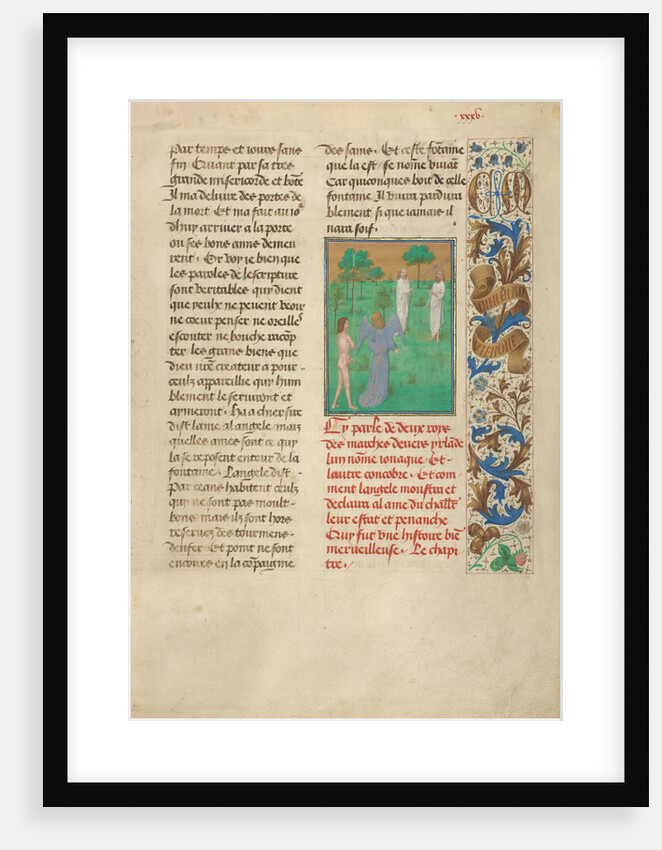 xxxv·
par temps et iours sans
fin Criant par sa tres
grande misericorde et bōte
Il ma deliure des portes de
la mort Et ma fait au io
dhuy arriver a la porte
ou ses bons anne demeu
rent · Or voy ie bien que
les paroles de lescripture
sont veritables quy dient
que
ne peuent veoir
ne coeur penser ne oreille
escouter ne bouche racōp
ter les grans biens que
dieu nr̄e createur a pour
ceulz appareillie quy hum
blement le serviront et
aymeront · Ha a chier sire
dist lame al angele maiz
quelles ames sont ce quy
la se reposent entour de la
fontaine · Langele dist ·
Par ceans habitent ceulz
quy ne sont pas moult
bons mais ilz sont hors
des tourmens
denfer Et point ne sont
encoires en la cōpaignie
des sains · Et ceste fōtaine
que la est se nōme viuāt
Car quiconques boit de celle
fontaine Il viura pardura
blement si que iamais il
naura soif ·
Cy parle de deux roys
des marches devers yrlāde
lun nōme ionaque Et
lautre concobre · Et com
ment langele moustra et
declaira al ame du chl̄r
leur estat et penance
Cruy fut vne histoire biē
merueilleuse · Le chapi
tre ·
CM
BIEN EN
AVIENGNE